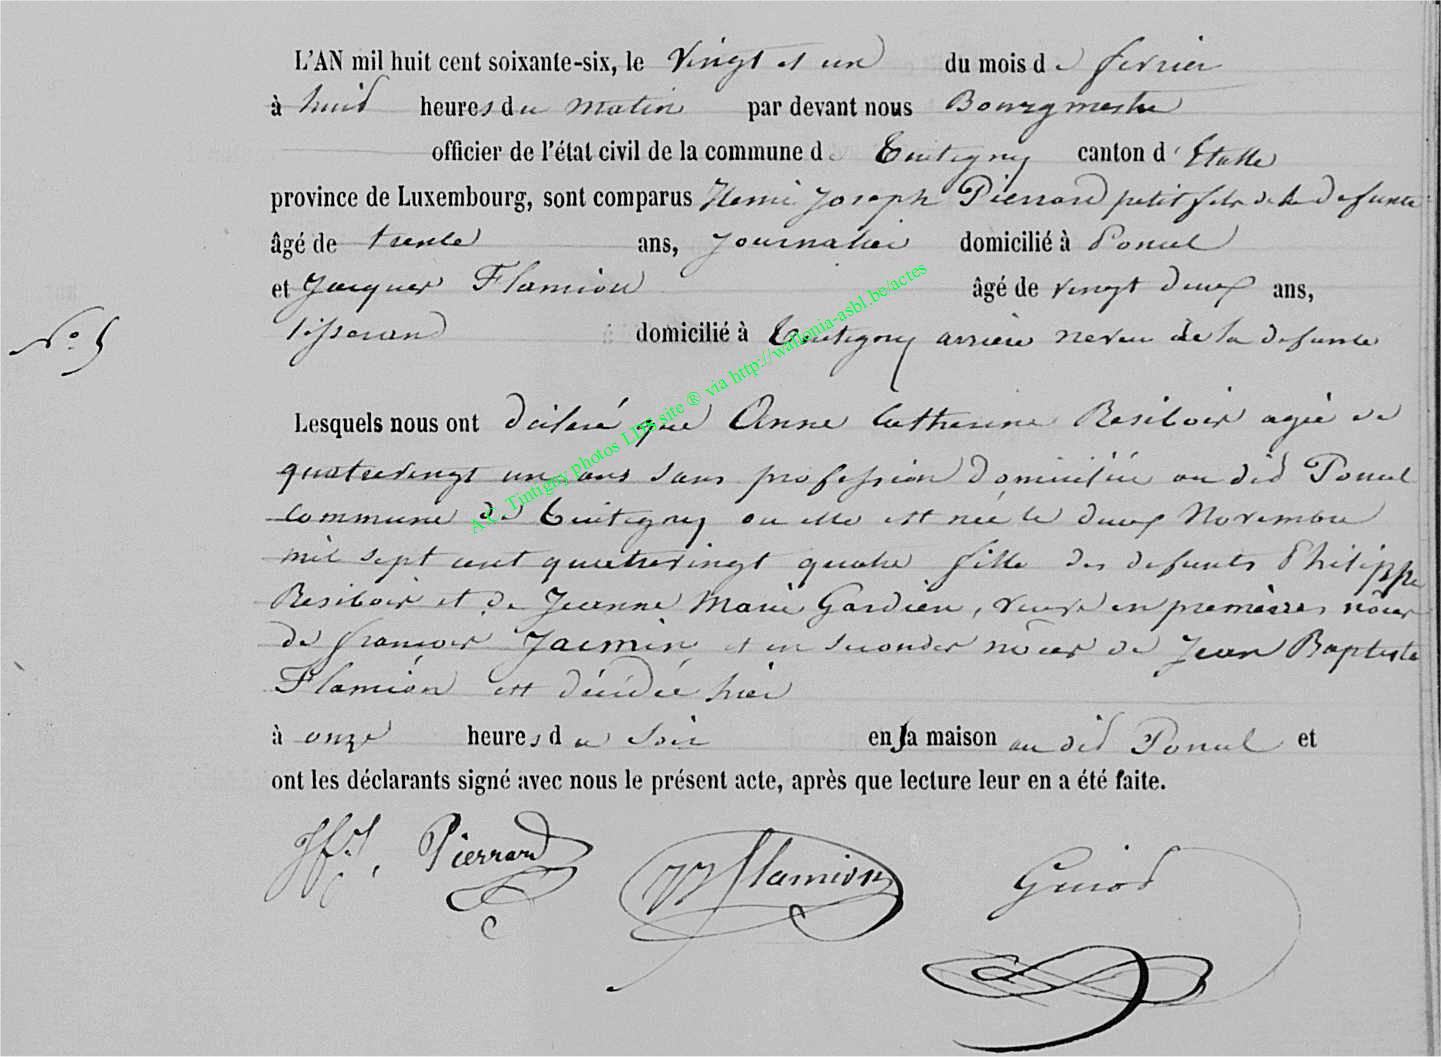 L'AN mil huit cent soixante-six, le vingt et un du mois de fevrier
à huit heures du matin par devant nous Bourgmestre
officier de l'état civil de la commune de Tintigny canton d'Etalle
province de Luxembourg, sont comparus Henri Joseph Pierrard petit fils de la defunte
âgé de trente ans, journalier domicilié à Poncel
et Jacques Flamion âgé de vingt deux ans,
N° 5
tisserand domicilié à Tintigny arrière neveu de la defunte
Lesquels nous ont déclaré que Anne Catherine Resiboix agée de
quatrevingt un ans sans profession domiciliée au dit Poncel
commune de Tintigny ou elle est née le deux Novembre
mil sept cent quatrevingt quatre fille des defunts Philippe
Resiboix et de Jeanne Marie Gardien, veuve en premières nôces
de françois Jacmin et en secondes nôces de Jean Baptiste
Flamion est décédée hier
à onze heures du soir en sa maison au dit Poncel et
ont les déclarants signé avec nous le présent acte, après que lecture leur en a été faite.
Pierrard Flamion Guiot
A.C. Tintigny photos LDS site ® via http://wallonia-asbl.be/actes